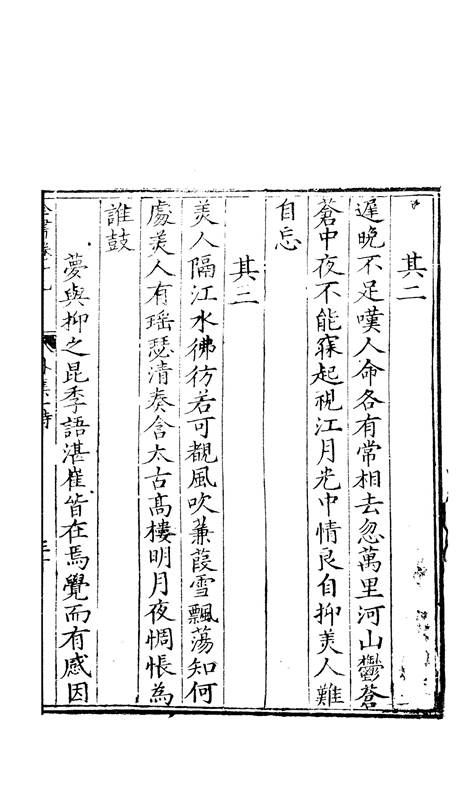 其二
遲晚不足嘆人命各有常相去忽萬里河山鬱蒼
蒼中夜不能寐起視江月光中情良自抑美人難
自忘
其三
美人隔江水彿彷若可覩風吹蒹葭雪飄蕩知何
處美人有瑶瑟清奏含太古高樓明月夜惆悵為
誰鼓
夢與抑之昆季語湛崔皆在焉覺而有感因
外集一詩